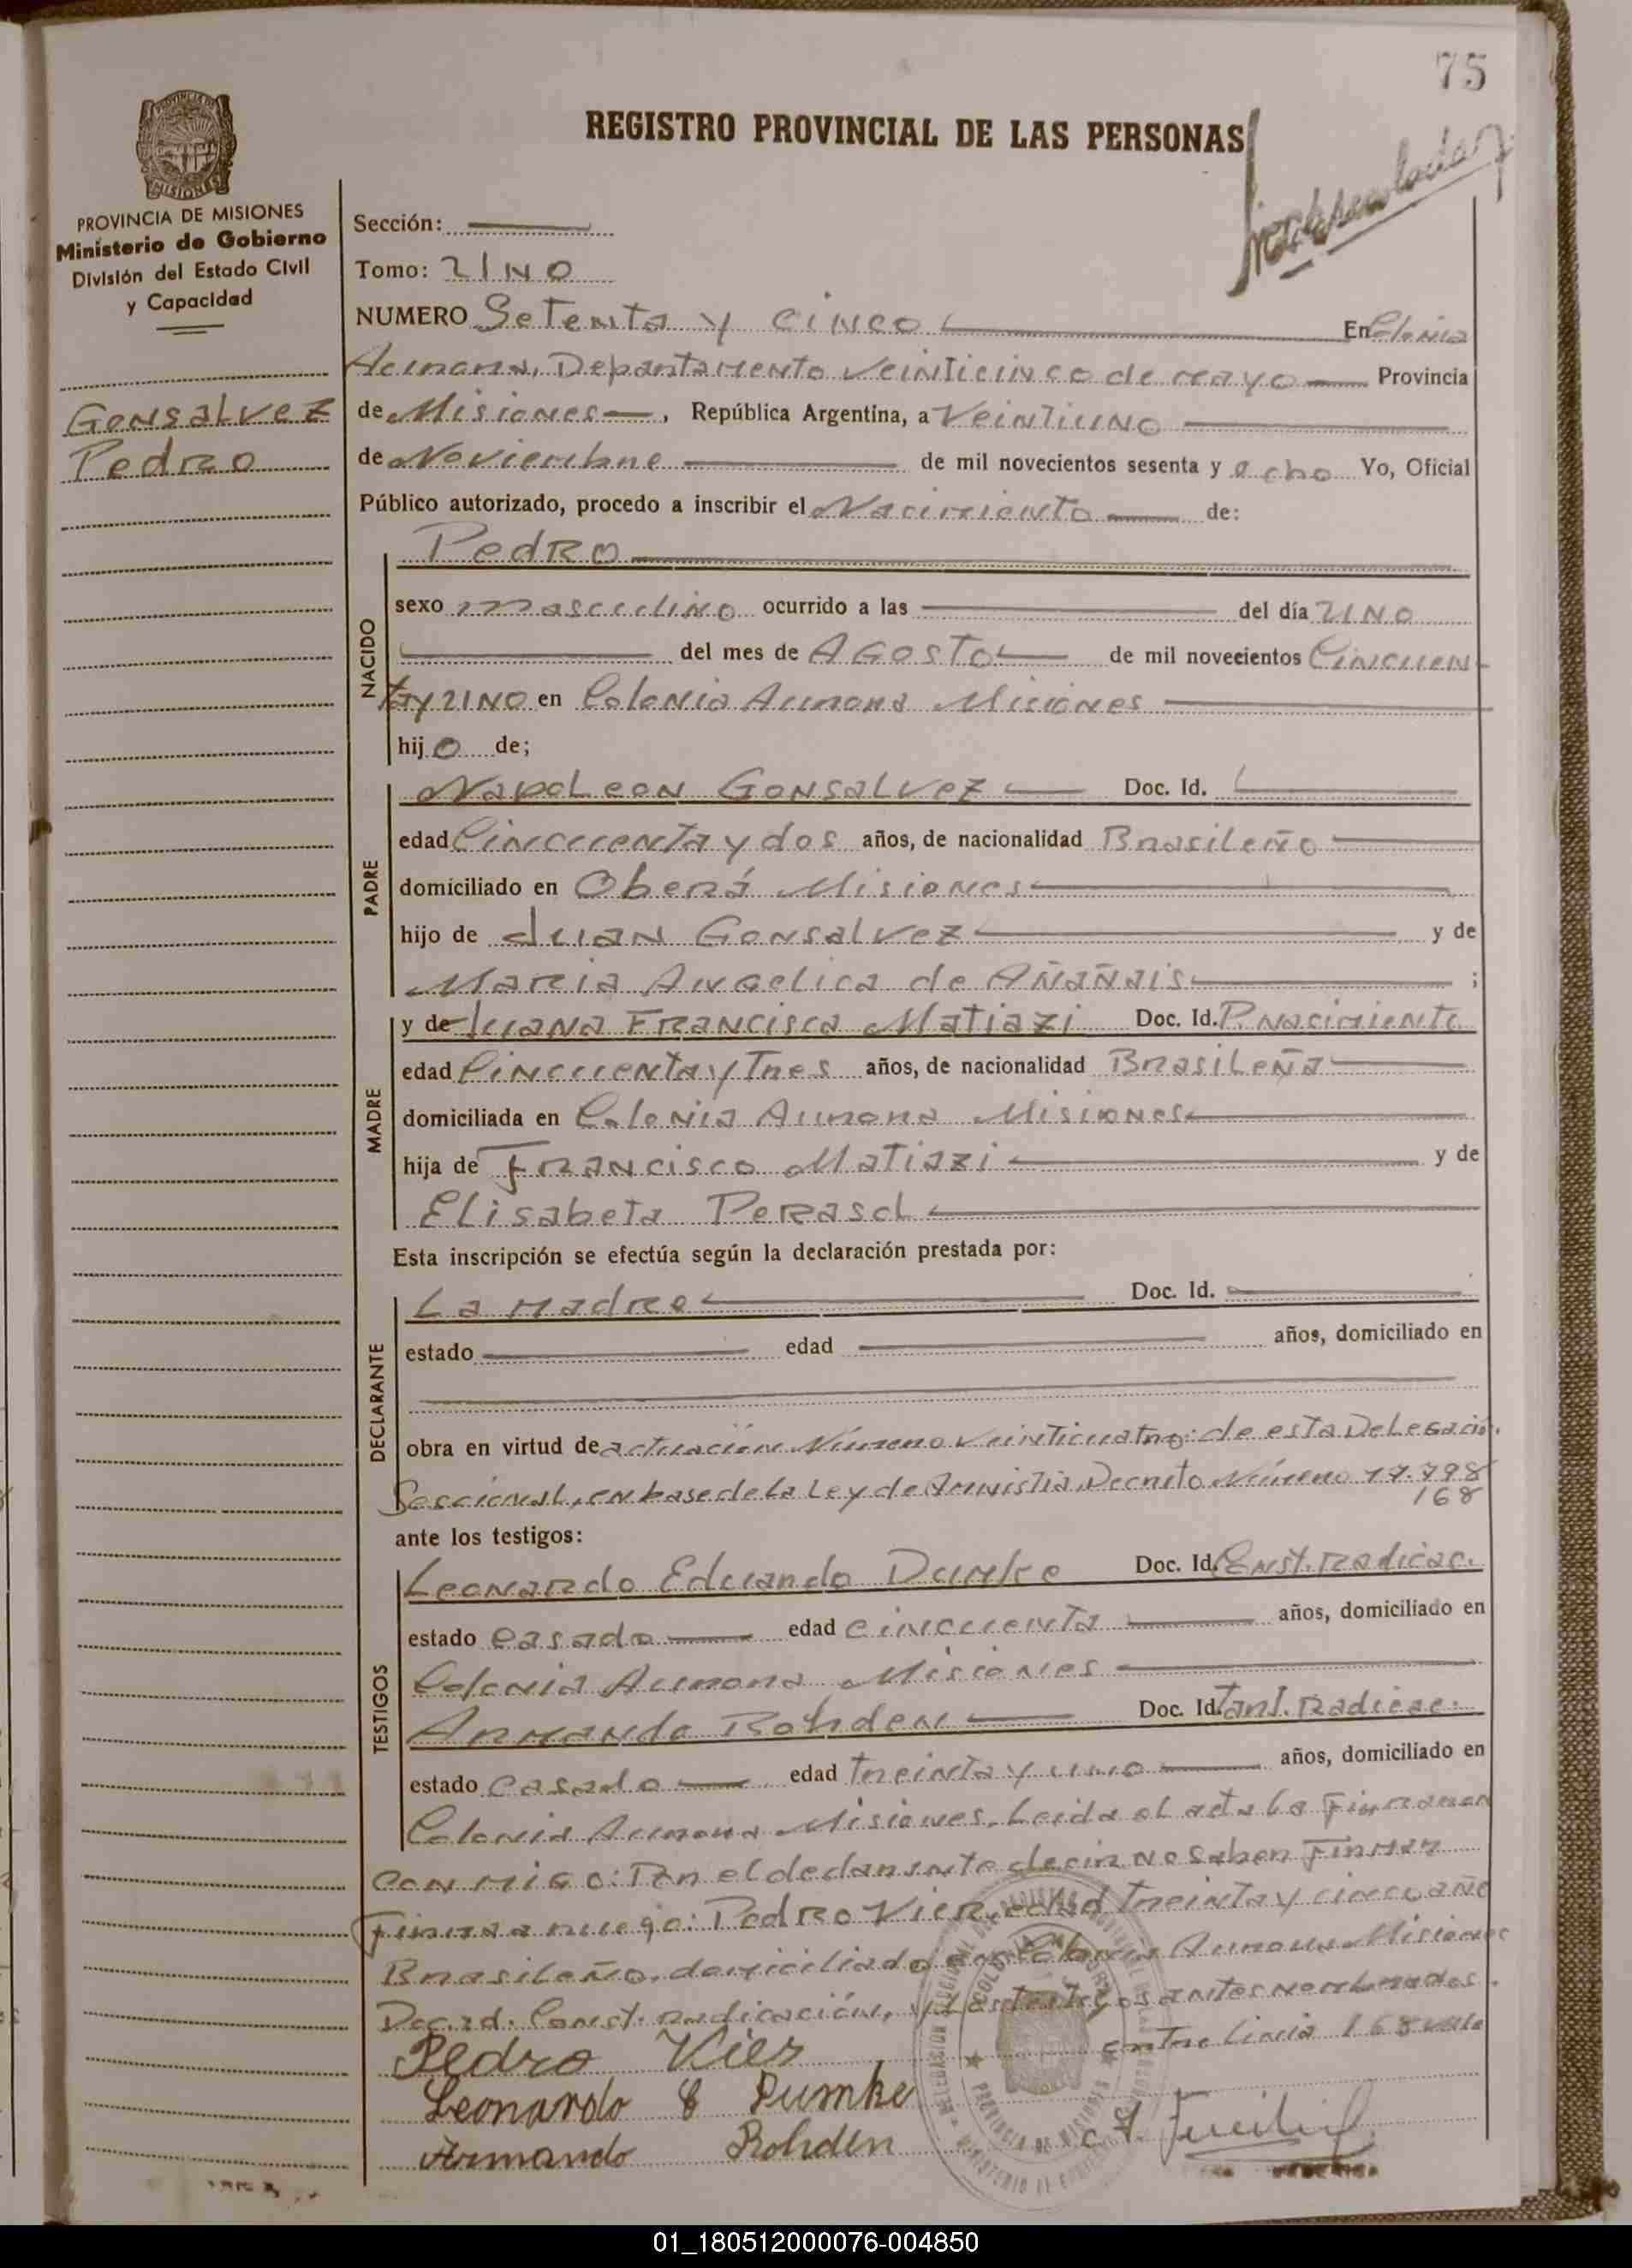 75
REGISTRO PROVINCIAL DE LAS PERSONAS
PROVINCIA DE MISIONES
Ministerio de Gobierno
División del Estado Civil
y Capacidad
Gonsalvez
Pedro
Sección:
Tomo: UNO
NUMERO Setenta y cinco En Colonia
Aurora, Departamento Veinticinco de mayo Provincia
de Misiones, República Argentina, a Veintiuno
de Noviembre de mil novecientos sesenta y ocho Yo, Oficial
Público autorizado, procedo a inscribir el Nacimiento de:
Pedro
NACIDO
sexo masculino ocurrido a las del día UNO
del mes de Agosto de mil novecientos Cincuen-
ta y UNO en Colonia Aurora Misiones
hijo de;
PADRE
Napoleon Gonsalvez Doc. Id.
edad Cincuenta y dos años, de nacionalidad Brasileño
domiciliado en Oberá Misiones
hijo de Juan Gonsalvez y de
Maria Angelica de Añañais ;
MADRE
y de Juana Francisca Matiazi Doc. Id. P. nacimiento
edad Cincuenta y Tres años, de nacionalidad Brasileña
domiciliada en Colonia Aurora Misiones
hija de Francisco Matiazi y de
Elisabeta Perasol
Esta inscripción se efectúa según la declaración prestada por:
DECLARANTE
La Madre Doc. Id.
estado edad años, domiciliado en
obra en virtud de actuación Número Veinticuatro: de esta Delegación
Seccional, en base de la Ley de Amnistia, Decreto Número 17.798
168
ante los testigos:
TESTIGOS
Leonardo Eduardo Dumke Doc. Id. Const. radicac.
estado casado edad cincuenta años, domiciliado en
Colonia Aurora Misiones
Armando Rohden Doc. Id. radicac.
estado casado edad treinta y uno años, domiciliado en
Colonia Aurora Misiones. Leida el acta la Firmaron
conmigo: Por el declarante decir no saben Firmar
Firma a ruego: Pedro Vier, edad treinta y cinco año
Brasileño, domiciliado en Colonia Aurora Misiones
Doc. id. Const. radicación, y los testigos antes nombrados.
entre linia 168 vale
Pedro Vier
Leonardo E Dumke
Armando Rohden
01_180512000076-004850